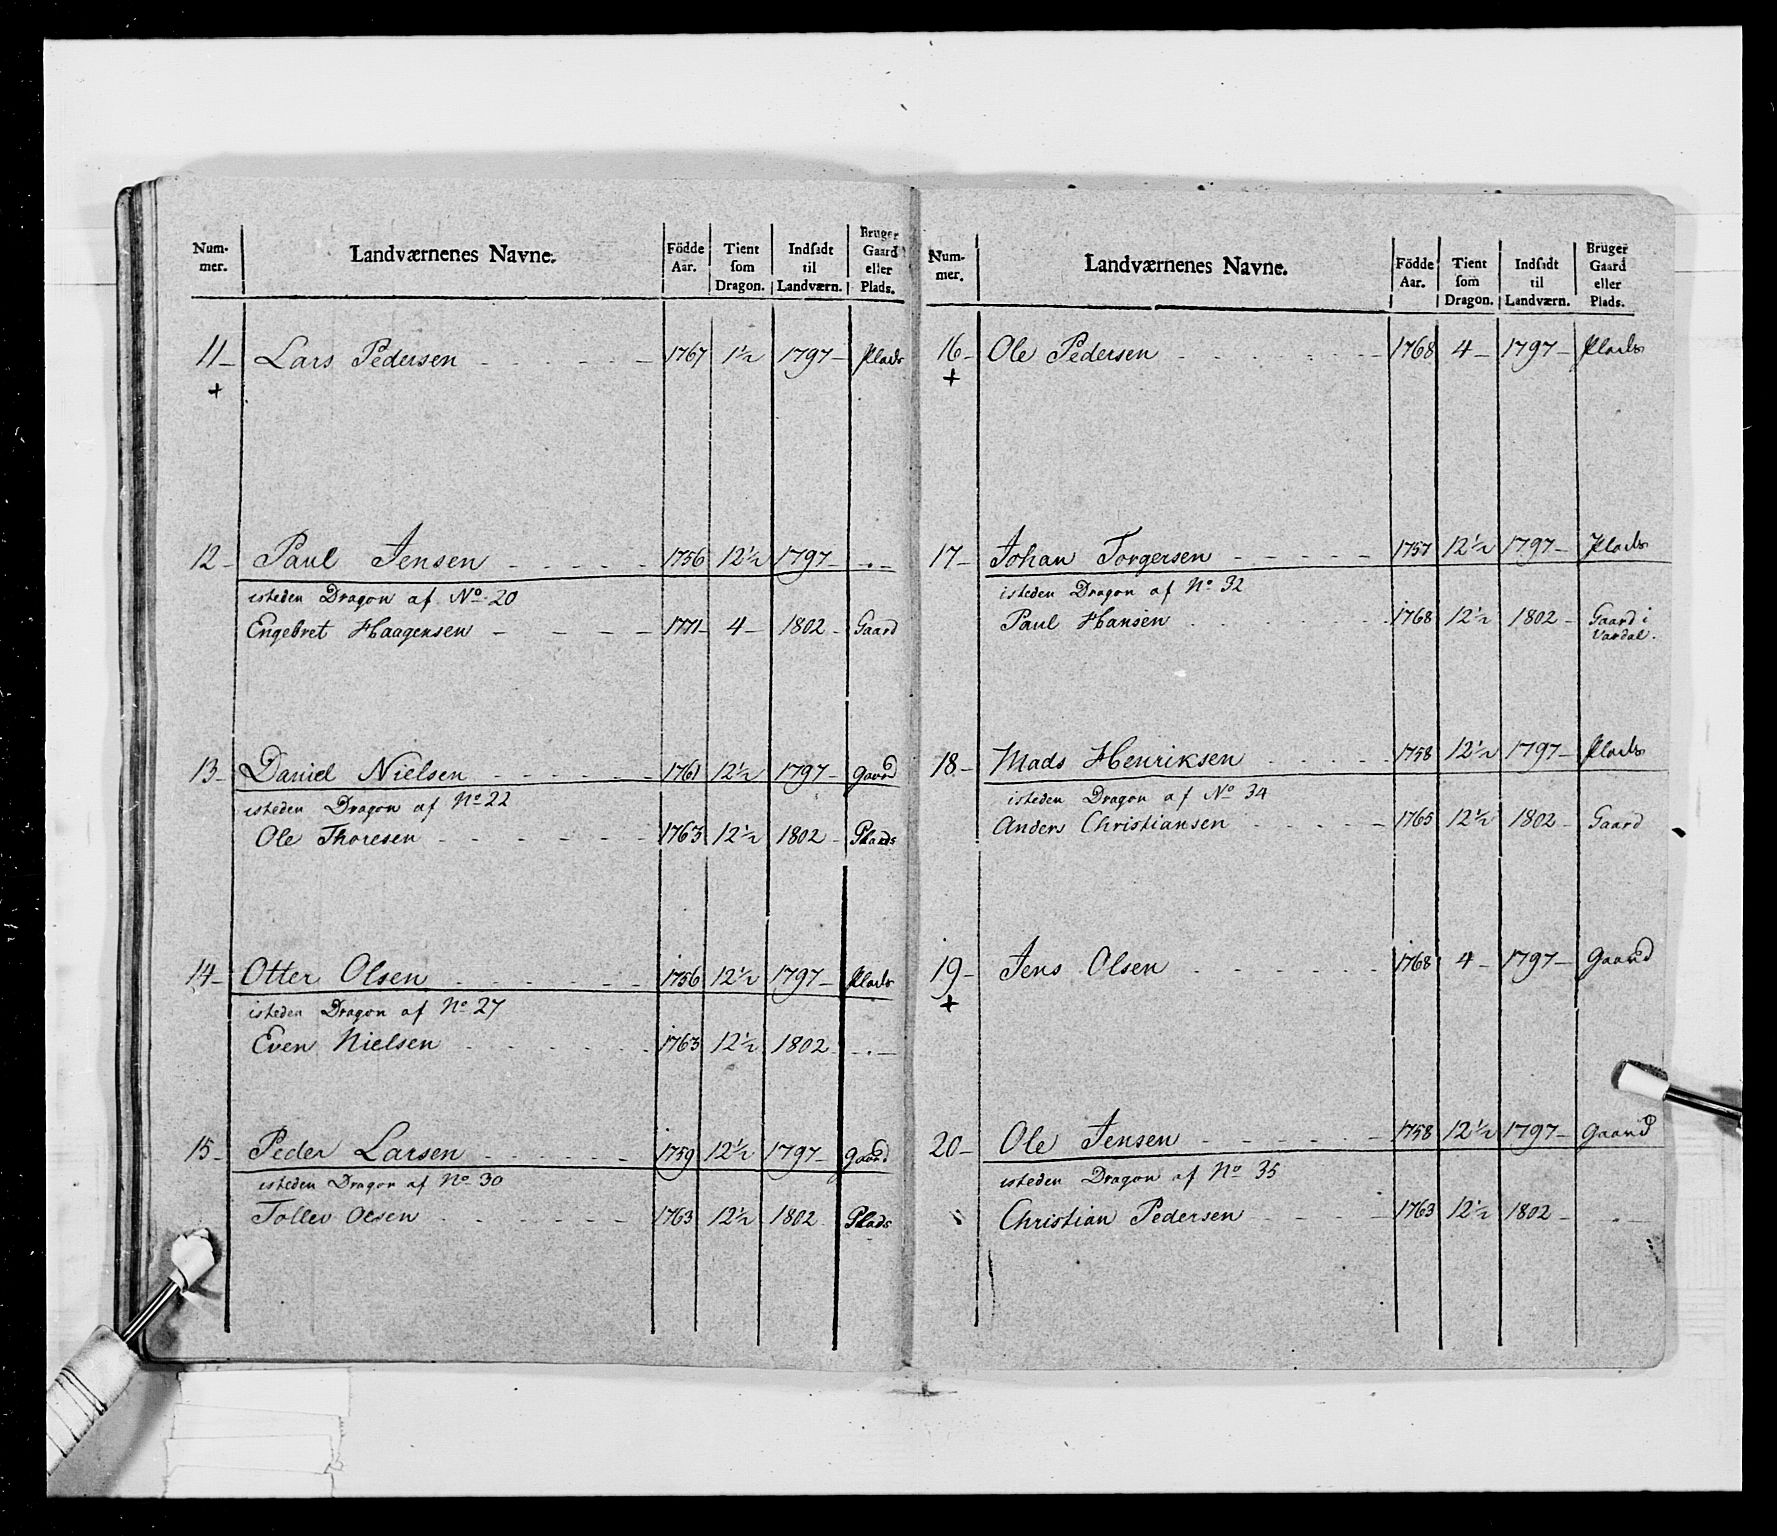 Num- mer. Landværnenes Navne. Födde Aar. Tient som Dragon. Indsadt til Landværn. Bruger Gaard eller Plads.
11 – Lars Pedersen - - - - 1767 1½ 1797 – Plads
+
12 – Paul Jensen - - - - 1756 12½ 1797 – . –
isteden Dragon af No 20
Engebret Haagensen - - - - 1771 – 4 – 1802 – Gaard
13 – Daniel Nielsen - - - - 1761 12½ 1797 – Gaard
isteden Dragon af No 22
Ole Thoresen - - - - 1763 12½ 1802 – Plads
14 – Otter Olsen - - - - 1756 12½ 1797 – Plads
isteden Dragon af No 27
Even Nielsen - - - - 1763 12½ 1802 . –
15 – Peder Larsen - - - - 1759 12½ 1797 – Gaard
isteden Dragon af No 30
Tollev Olsen - - - - 1763 12½ 1802 Plads
Num- mer. Landværnenes Navne. Födde Aar. Tient som Dragon. Indsadt til Landværn. Bruger Gaard eller Plads.
16 – Ole Pedersen - - - - 1768 4 – 1797 – Plads
+
17 – Johan Torgersen - - - - 1757 12½ 1797 – Plads
isteden Dragon af No 32
Paul Hansen - - - - 1768 12½ 1802 – Gaard i
Vardal.
18 – Mads Henriksen - - - - 1758 12½ 1797 – Plads
isteden Dragon af No 34
Anders Christiansen - - - - 1765 12½ 1802 – Gaard
19 – Jens Olsen - - - - 1768 4 – 1797 – Gaard
+
20 – Ole Jensen - - - - 1758 12½ 1797 – Gaard
isteden Dragon af No 35
Christian Pedersen - - - - 1763 12½ 1802 – . –